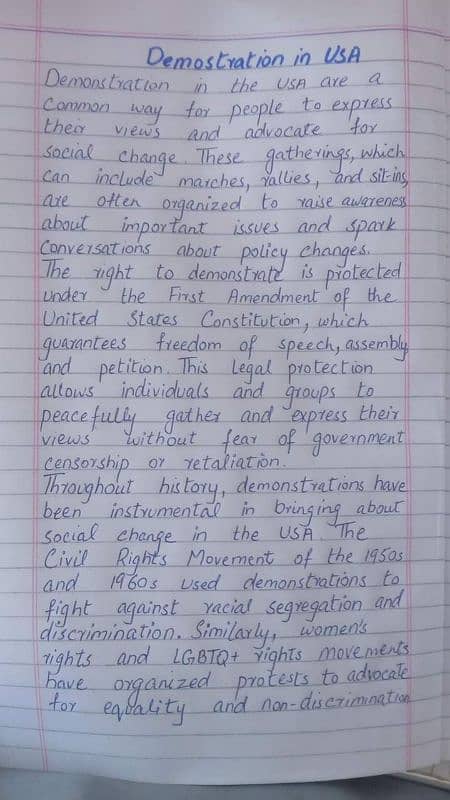 Demostration in USA
Demonstration in the USA are a
Common way for people to express
their views and advocate for
social change. These gatherings, which
can include marches, rallies, and sit-ins,
are often organized to raise awareness
about important issues and spark
Conversations about policy changes.
The right to demonstrate is protected
under the First Amendment of the
United States Constitution, which
guarantees freedom of speech, assembly
and petition. This Legal protection
allows individuals and groups to
peacefully gather and express their
views without fear of government
censorship or retaliation.
Throughout history, demonstrations have
been instrumental in bringing about
social change in the USA. The
Civil Rights Movement of the 1950s
and 1960s used demonstrations to
fight against racial segregation and
discrimination. Similarly, women's
rights and LGBTQ+ rights movements
have organized protests to advocate
for equality and non-discrimination